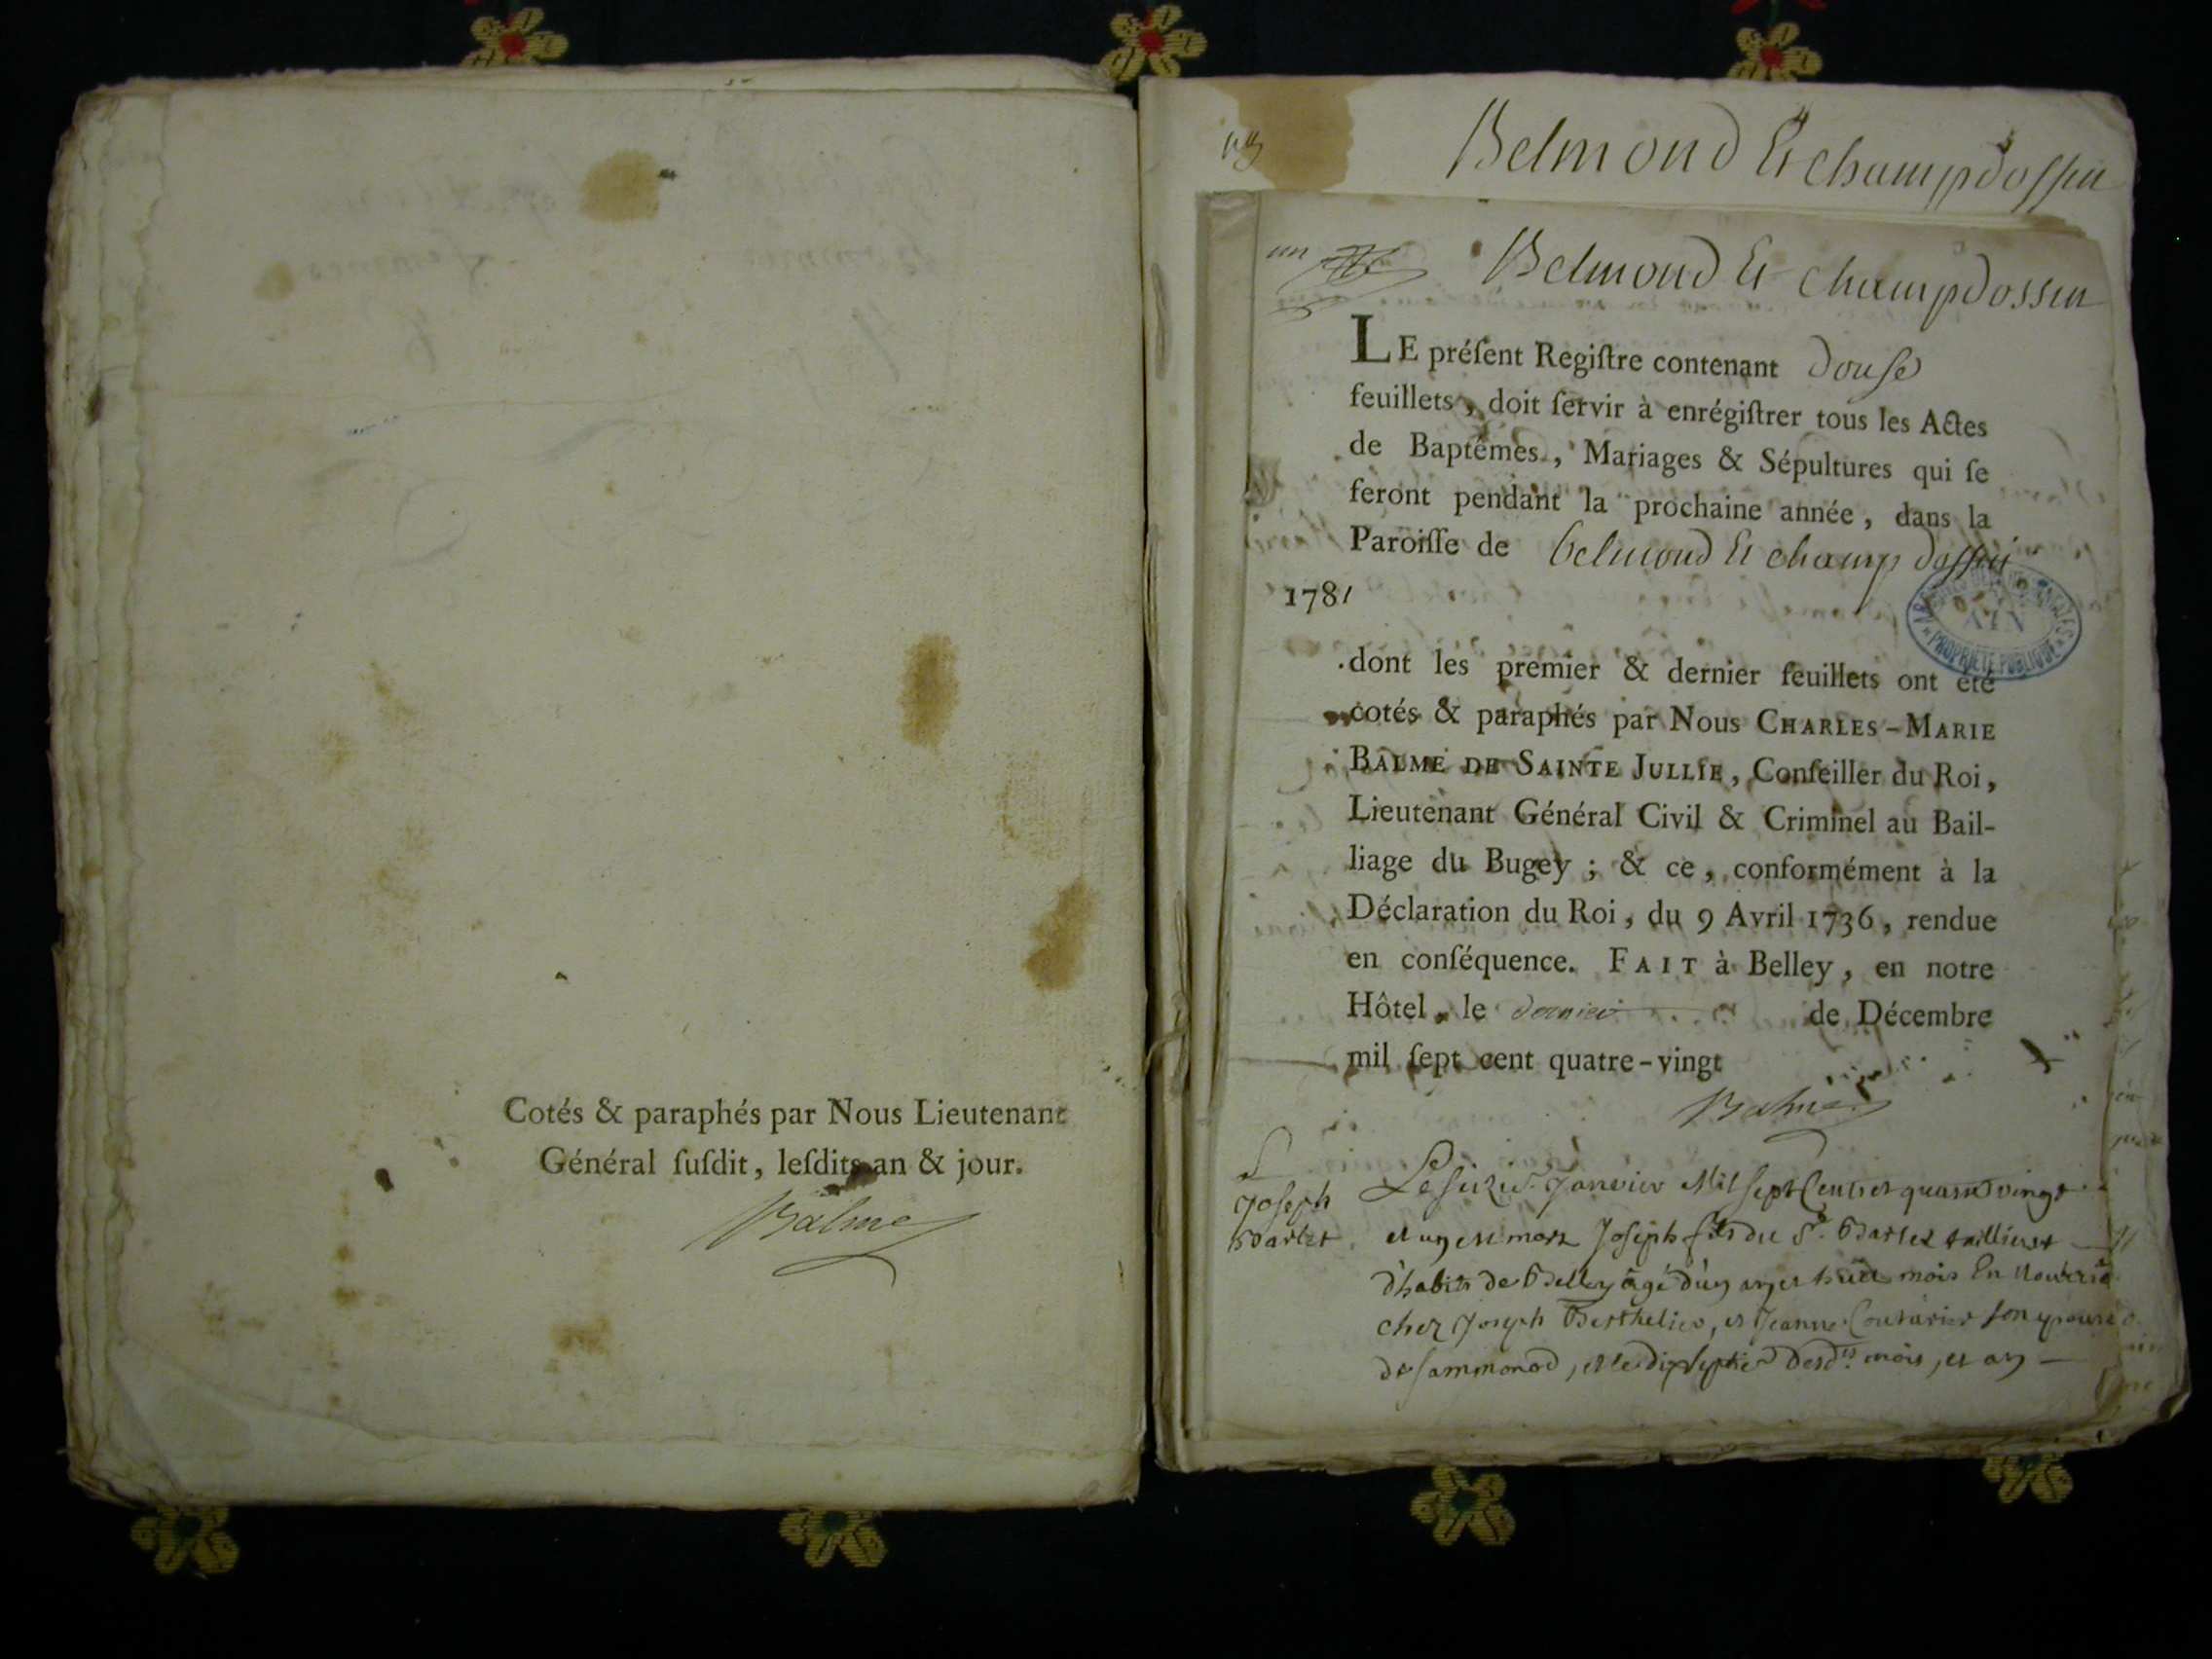 Cotés & paraphés par Nous Lieutenant
Général ſuſdit, leſdits an & jour.
Balme
Belmond Et champdossin
un
Belmond Et champdossin
LE préſent Regiſtre contenant douse
feuillets, doit ſervir à enrégiſtrer tous les Actes
de Baptêmes, Mariages & Sépultures qui ſe
feront pendant la prochaine année, dans la
Paroiſſe de belmond Et champ dossin
1781
PROPRIÉTÉ PUBLIQUE
AIN
dont les premier & dernier feuillets ont été
cotés & paraphés par Nous CHARLES-MARIE
BALME DE SAINTE JULLIE, Conſeiller du Roi,
Lieutenant Général Civil & Criminel au Bail-
liage du Bugey ; & ce, conformément à la
Déclaration du Roi, du 9 Avril 1736, rendue
en conſéquence. FAIT à Belley, en notre
Hôtel, le dernier de Décembre
mil ſept cent quatre-vingt
Balme
S
Joseph
Barlet
Le seizie Janvier Mil sept Cent et quatre vingt
et un est mort Joseph fils du Sr. Barlet taillieur
d'habits de Belley âgé d'un an et huit mois En
chez Joseph Berthelier, et Jeanne Couturier son epouse
de sammonod, et le dix septie desdts mois, et an